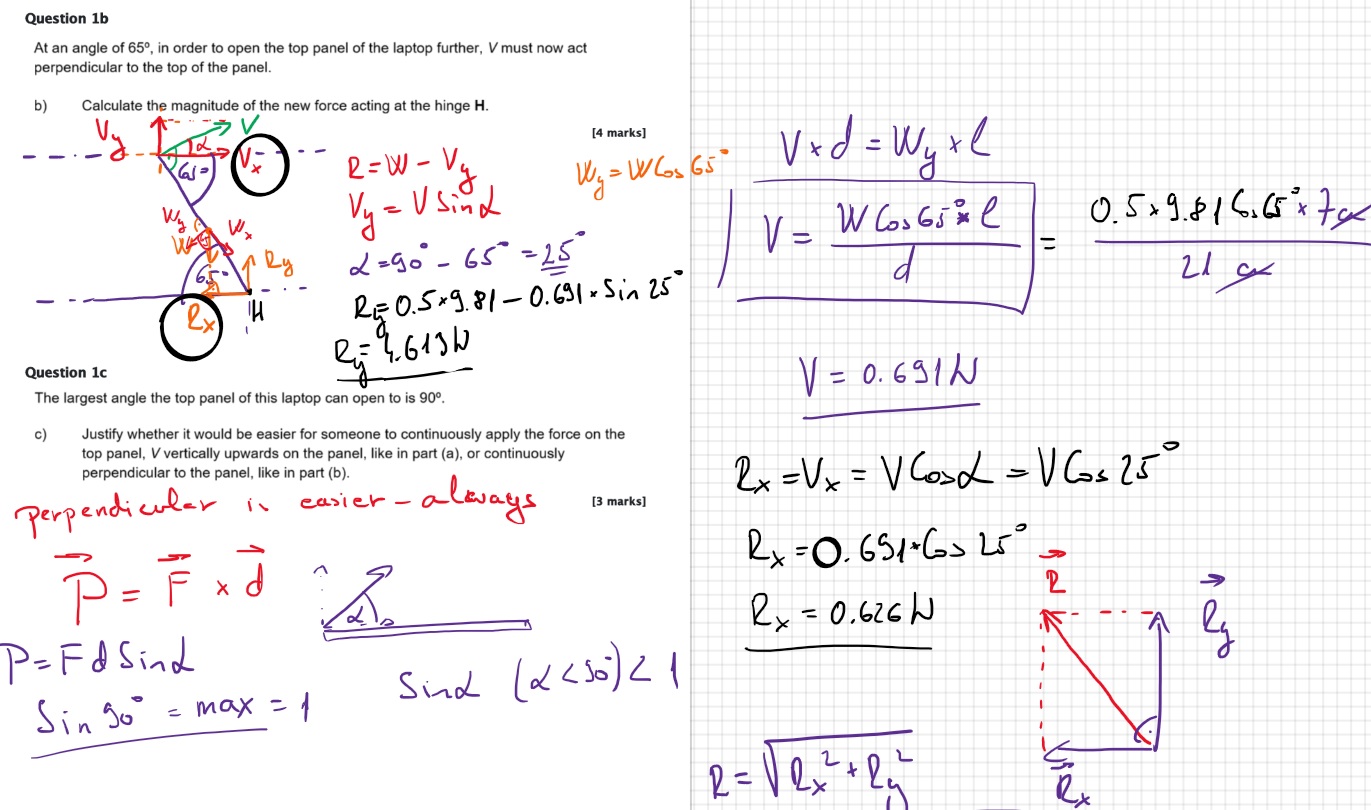 Question 1b
At an angle of 65º, in order to open the top panel of the laptop further, V must now act
perpendicular to the top of the panel.
b) Calculate the magnitude of the new force acting at the hinge H.
[4 marks]
Vy
V
α
Vx
65°
Wy
Wx
W
Ry
65°
Rx
H
R = W - Vy
Vy = V Sinα
α = 90° - 65° = 25°
Ry = 0.5 × 9.81 - 0.691 × Sin 25°
Ry = 4.619 N
Wy = W Cos 65°
Question 1c
The largest angle the top panel of this laptop can open to is 90º.
c) Justify whether it would be easier for someone to continuously apply the force on the
top panel, V vertically upwards on the panel, like in part (a), or continuously
perpendicular to the panel, like in part (b).
[3 marks]
perpendicular is easier - always
P = F × d
α
P = F d Sinα
Sin 90° = max = 1
Sinα (α < 90°) < 1
V × d = Wy × l
V = W Cos 65° × l / d = 0.5 × 9.81 Cos 65° × 7 cm / 21 cm
V = 0.691 N
Rx = Vx = V Cosα = V Cos 25°
Rx = 0.691 × Cos 25°
Rx = 0.626 N
R
Ry
Rx
R = √Rx² + Ry²